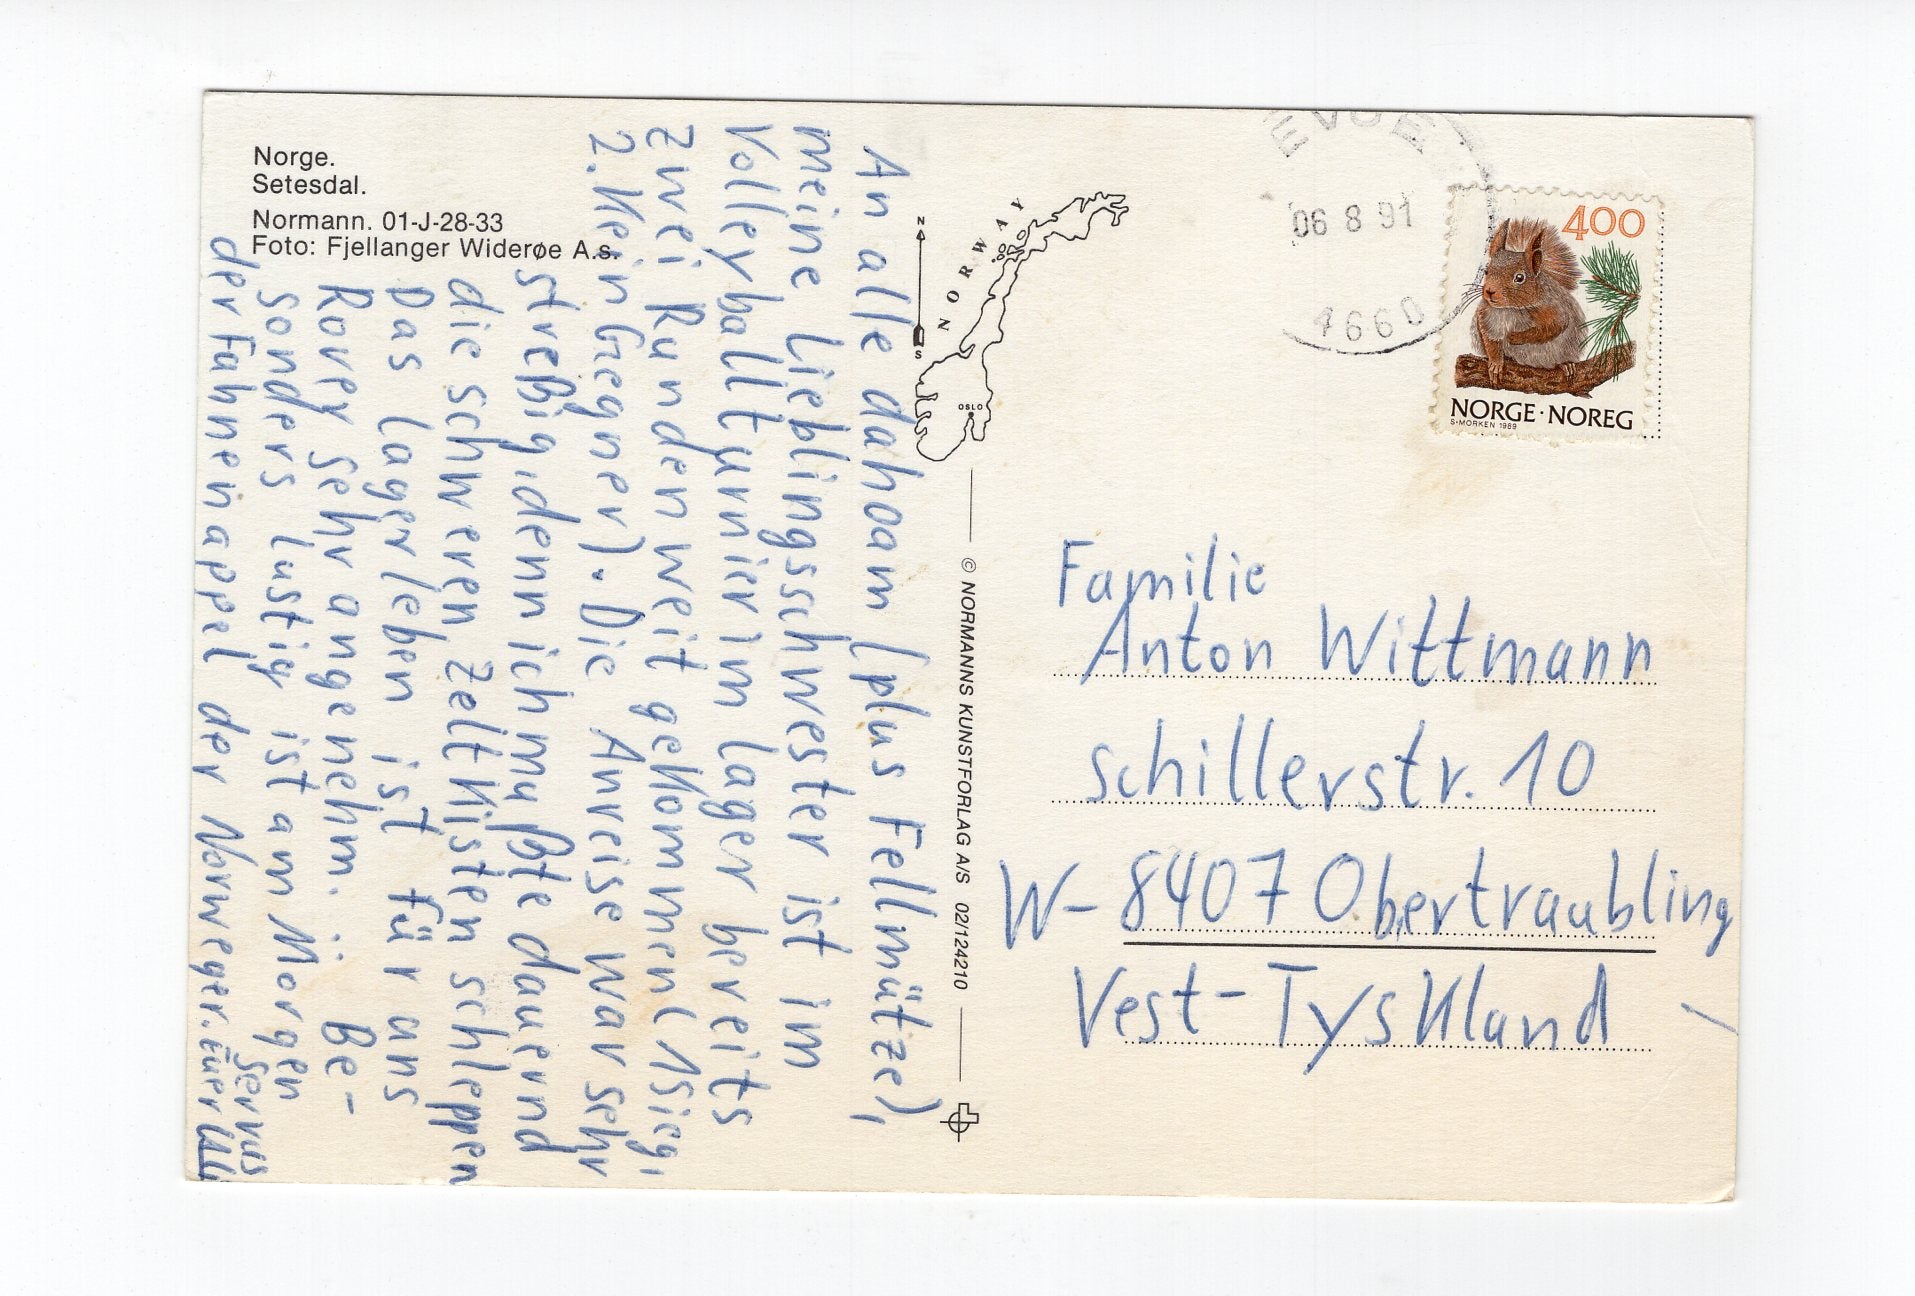 Norge.
Setesdal.
Normann. 01-J-28-33
Foto: Fjellanger Widerøe A.s.
An alle dahoam (plus Fellmütze),
meine Lieblingsschwester ist im
Volleyballturnier im Lager bereits
zwei Runden weit gekommen (1Sieg,
2. Kein Gegner). Die Anreise war sehr
streßig, denn ich mußte dauernd
die schweren Zeltkisten schleppen
Das Lagerleben ist für uns
Rover sehr angenehm. Be-
sonders lustig ist am Morgen
der Fahnenappel der Norweger.
Servus
Euer Uli
N
S
NORWAY
OSLO
© NORMANNS KUNSTFORLAG A/S 02/124210
EVJE
06 8 91
4660
400
NORGE·NOREG
S·MORKEN 1989
Familie
Anton Wittmann
Schillerstr. 10
W- 8407 Obertraubling
Vest-Tyskland